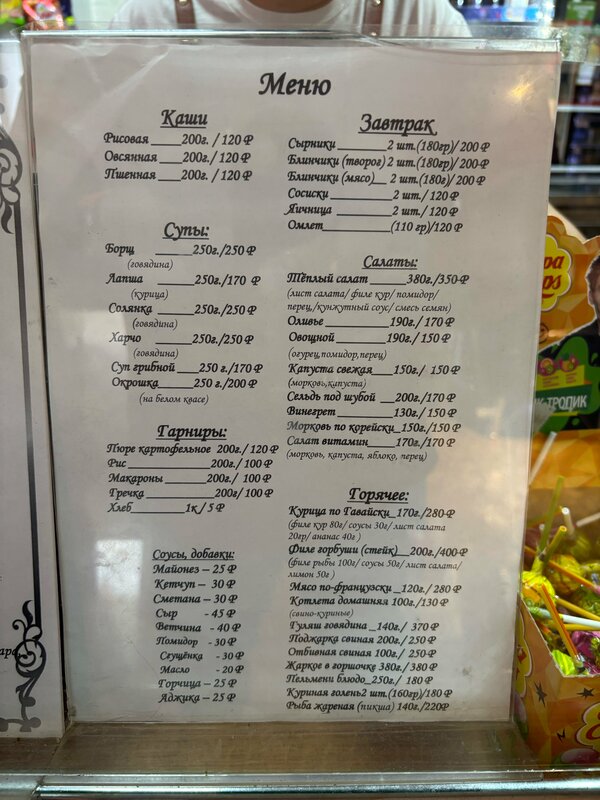 Меню
Каши
Рисовая ____200г. / 120 ₽
Овсянная ____200г. / 120 ₽
Пшенная ____200г. / 120 ₽
Супы:
Борщ ______250г./250 ₽
(говядина)
Лапша ______250г./170 ₽
(курица)
Солянка ______250г./250 ₽
(говядина)
Харчо ______250г./250 ₽
(говядина)
Суп грибной ____250 г./170₽
Окрошка______250 г./200 ₽
(на белом квасе)
Гарниры:
Пюре картофельное 200г./ 120 ₽
Рис ____________200г./ 100 ₽
Макароны _______200г./ 100 ₽
Гречка __________200г/ 100 ₽
Хлеб________1к / 5 ₽
Соусы, добавки:
Майонез – 25 ₽
Кетчуп – 30 ₽
Сметана – 30 ₽
Сыр - 45 ₽
Ветчина - 40 ₽
Помидор - 30 ₽
Сгущёнка - 30 ₽
Масло - 20 ₽
Горчица – 25 ₽
Аджика – 25 ₽
Завтрак
Сырники _______2 шт.(180гр)/ 200 ₽
Блинчики (творог) 2 шт.(180гр)/ 200 ₽
Блинчики (мясо)__ 2 шт.(180г)/ 200 ₽
Сосиски __________2 шт./ 120 ₽
Яичница _________2 шт./ 120 ₽
Омлет__________(110 гр)/120 ₽
Салаты:
Тёплый салат ______380г./350₽
(лист салата/ филе кур/ помидор/
перец,/кунжутный соус/ смесь семян)
Оливье __________190г./ 170 ₽
Овощной _________190г./ 150 ₽
(огурец,помидор,перец)
Капуста свежая____150г./ 150 ₽
(морковь,капуста)
Сельдь под шубой __200г./170 ₽
Винегрет _________130г./ 150 ₽
Морковь по корейски_150г./150 ₽
Салат витамин_____170г./170 ₽
(морковь, капуста, яблоко, перец)
Горячее:
Курица по Гавайски_170г./280₽
(филе кур 80г/ соусы 30г/ лист салата
20гр/ ананас 40г )
Филе горбуши (стейк)__200г./400₽
(филе рыбы 100г/ соусы 50г/ лист салата/
лимон 50г )
Мясо по-французски _120г./ 280 ₽
Котлета домашняя 100г./130 ₽
(свино-куриные)
Гуляш говядина _140г./ 370 ₽
Поджарка свиная 200г./ 250 ₽
Отбивная свиная 100г./ 250 ₽
Жаркое в горшочке 380г./ 380 ₽
Пельмени блюдо_250г./ 180 ₽
Куриная голень2 шт.(160гр)/180 ₽
Рыба жареная (пикша) 140г./220₽